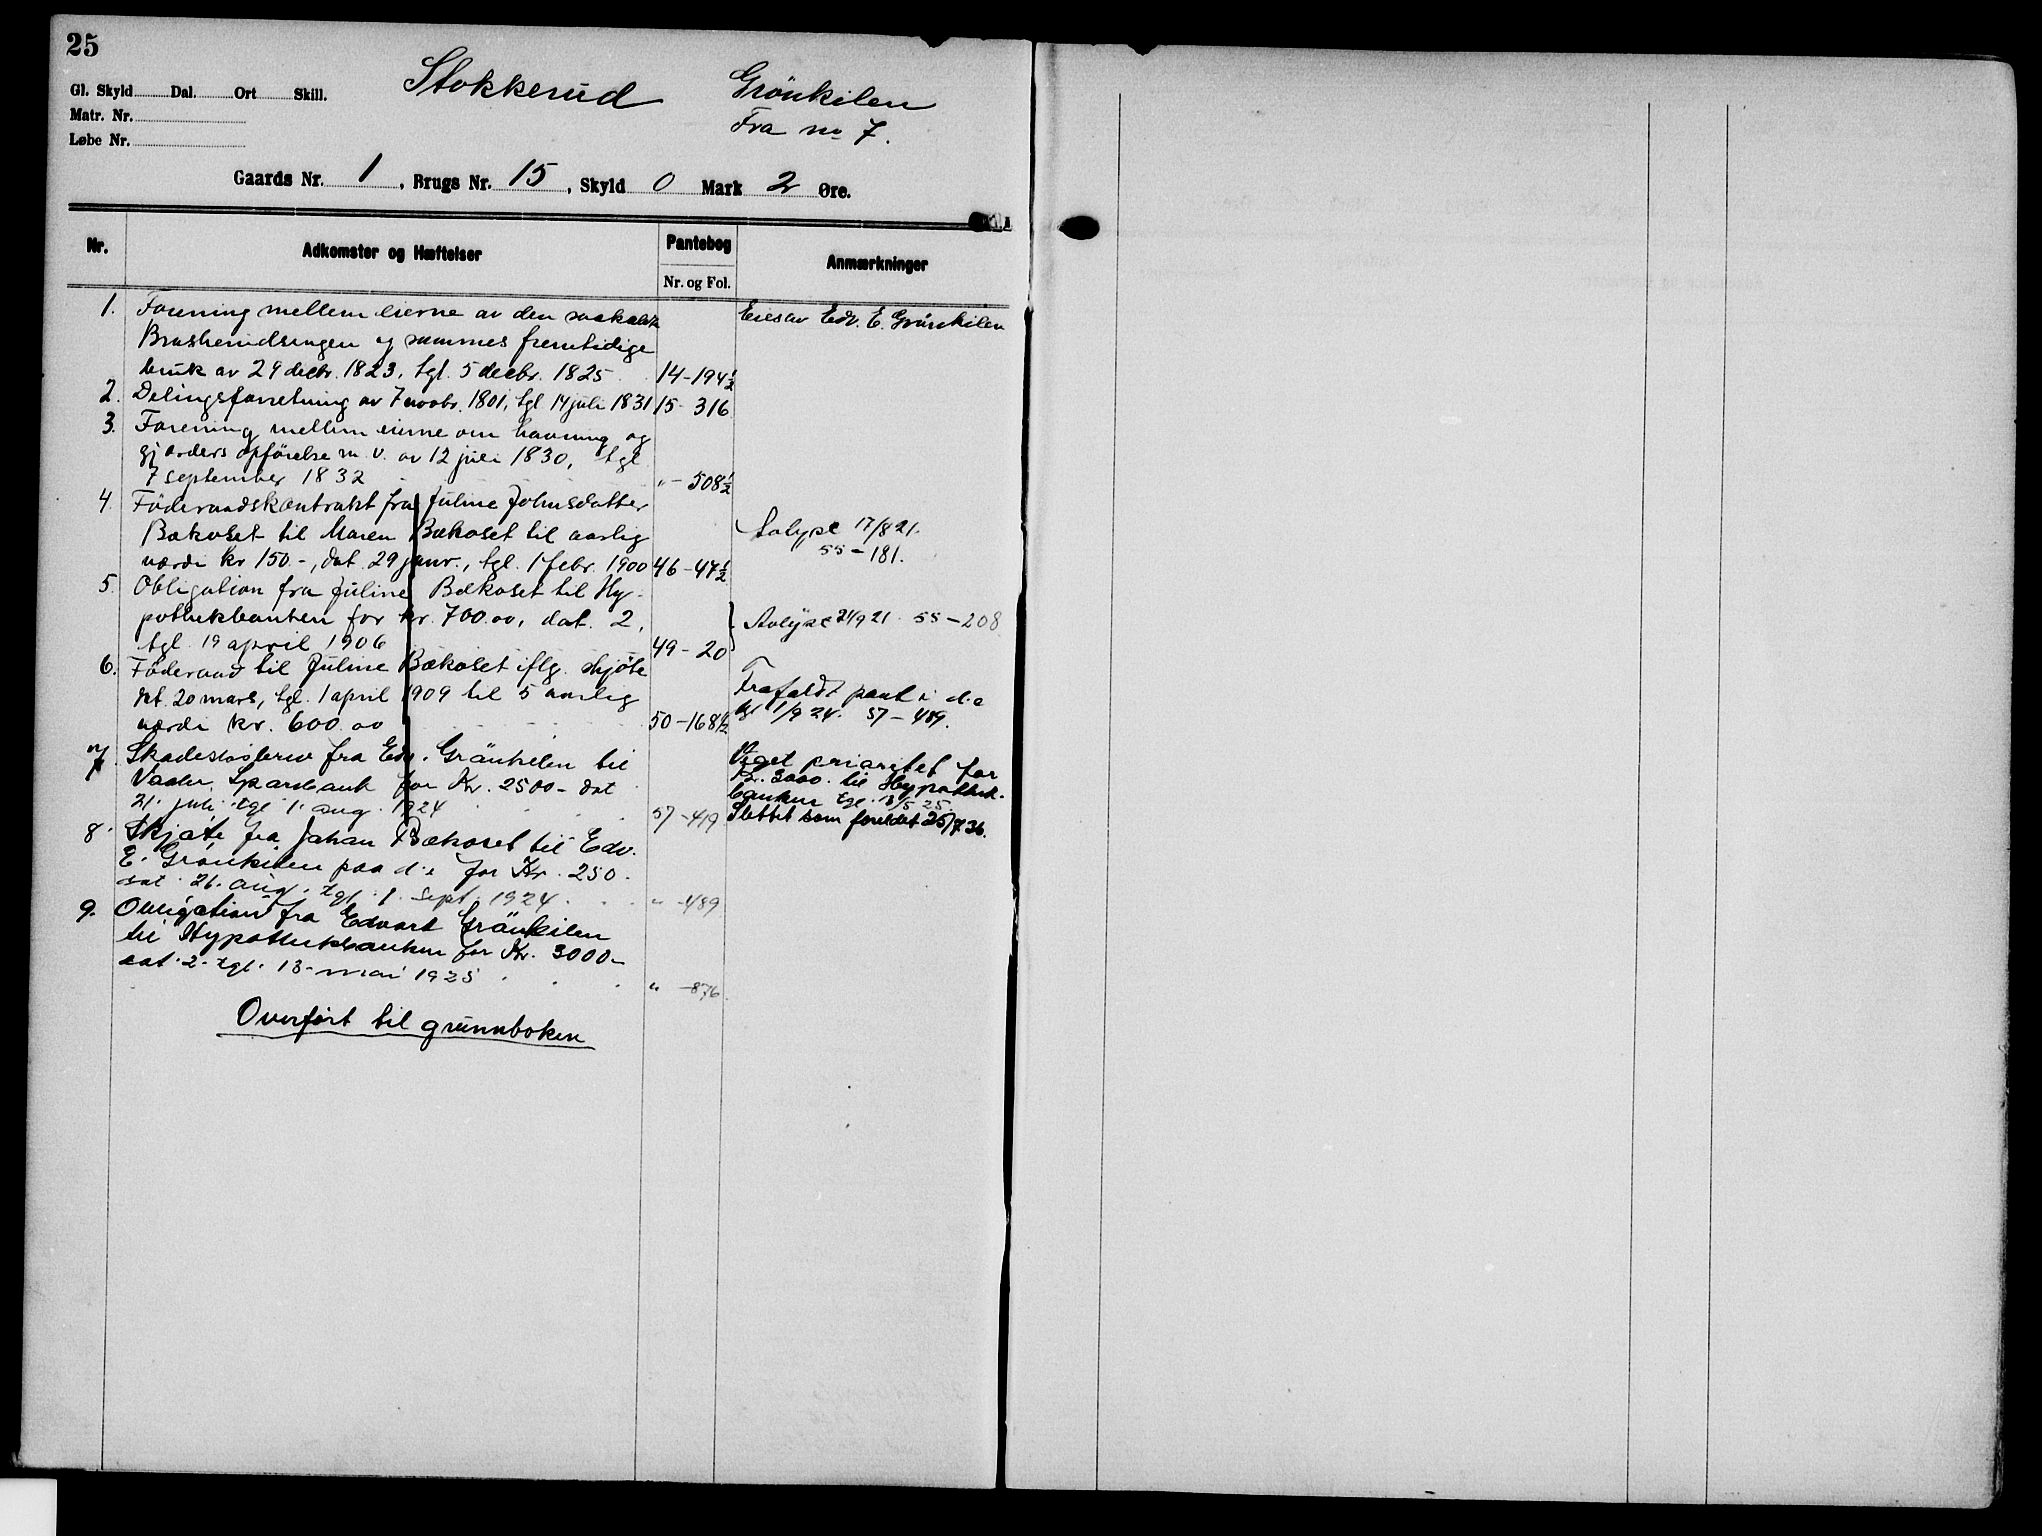 25
Gl. Skyld Dal. Ort Skill.
Matr. Nr.
Løbe Nr.
Stokkerud Grönkilen
Fra nr 7.
Gaards Nr. 1, Brugs Nr. 15, Skyld 0 Mark 2 Øre.
Nr. Adkomster og Hæftelser Pantebog Anmærkninger
Nr. og Fol.
1. Forening mellem eierne av den saakaldte Eies av Edv. E. Grönkilen
og sammes fremtidige
bruk av 29 decbr. 1823, tgl. 5 decbr. 1825 14-194½
2. Delingsforretning av 7 novbr. 1801, tgl 14 juli 1831 15-316
3. Forening mellem eierne om havning og
gjærders opförelse m. v. av 12 juli 1830, tgl
7 september 1832 "-508½
4. Föderaadskontrakt fra Juline Johnsdatter
Bækoset til Maren Bækoset til aarlig Avlyse 17/8 21.
værdi kr 150.-, dat. 29 janr., tgl. 1 febr. 1900 46-47½ 55-181.
5. Obligation fra Juline Bækoset til Hy-
pothekbanken for kr. 700.00, dat. 2, Avlyse 21/9 21. 55-208
tgl. 19 april 1906 49-20
6. Föderaad til Juline Bækoset iflg. skjöte
dat. 20 mars, tgl. 1 april 1909 til 5 aarlig Frafaldt pant i d.e
værdi kr. 600.00 50-168½ tgl 1/9 24. 57-489.
7. Skadeslösbrev fra Edv. Grönkilen til Veget prioritet for
Vaaler Sparebank for Kr. 2500- dat Kr. 3000. til Hypothek-
21. juli tgl 1. aug. 1924 57-419 banken tgl. 13/5 25.
Slettet som foreldet 25/7 36.
8. Skjöte fra Johan Bækoset til Edv.
E. Grönkilen paa d.e for Kr. 250.
dat. 26. aug. tgl. 1. sept. 1924 "-489
9. Obligation fra Edvart Grönkilen
til Hypothekbanken for Kr. 3000-
dat. 2. tgl. 13. mai 1925 "-876.
Overfört til grunnboken